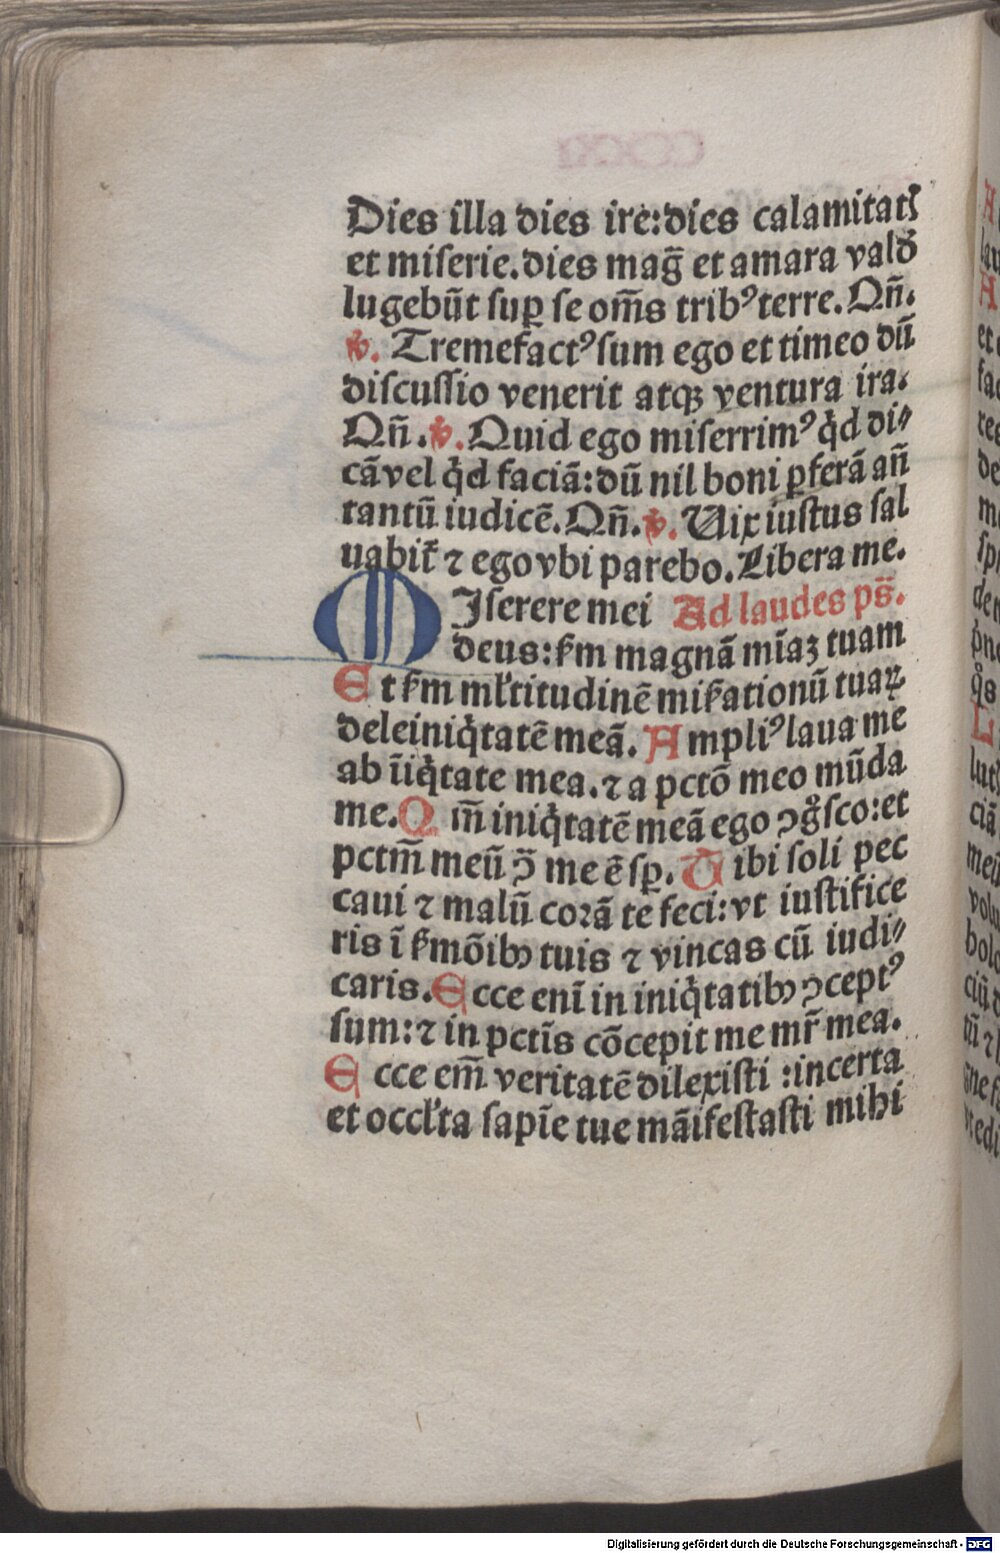 Dies illa dies ire:dies calamitatꝭ
et miserie.dies mag̃ et amara valđ
lugebūt suꝑ se om̄s tribꝰ terre.Qn̄.
℣. Tremefactꝰ sum ego et timeo dū
discussio venerit atqꝫ ventura ira.
Qn̄.℣.Quid ego miserrimꝰ qͥd di⸗
cā vel qͥd faciā:dū nil boni ꝑferā an̄
tantū iudicē.Qn̄.℣.Uix iustus sal
uabit̄ ⁊ ego vbi parebo.Libera me.
MIserere mei Ad laudes ps̄.
deus:ẜm magnā mīaꝫ tuam
Et ẜm ml̄titudinē miẜationū tuaꝝ
dele iniqͥtatē meā. Ampliꝰ laua me
ab īiqͥtate mea.⁊ a pctō meo mūda
me.Qm̄ iniqͥtatē meā ego ꝯgͦsco:et
pctm̄ meū ꝯ̄ me ē sꝑ.Tibi soli pec
caui ⁊ malū coꝛā te feci:vt iustifice
ris ī ẜmōibꝫ tuis ⁊ vincas cū iudi⸗
caris.Ecce enī in iniqͥtatibꝫ ꝯceptꝰ
sum:⁊ in pctīs cōcepit me mr̄ mea.
Ecce em̄ veritatē dilexisti :incerta
et occl̄ta sapīe tue māifestasti mihi
Digitalisierung gefördert durch die Deutsche Forschungsgemeinschaft - DFG